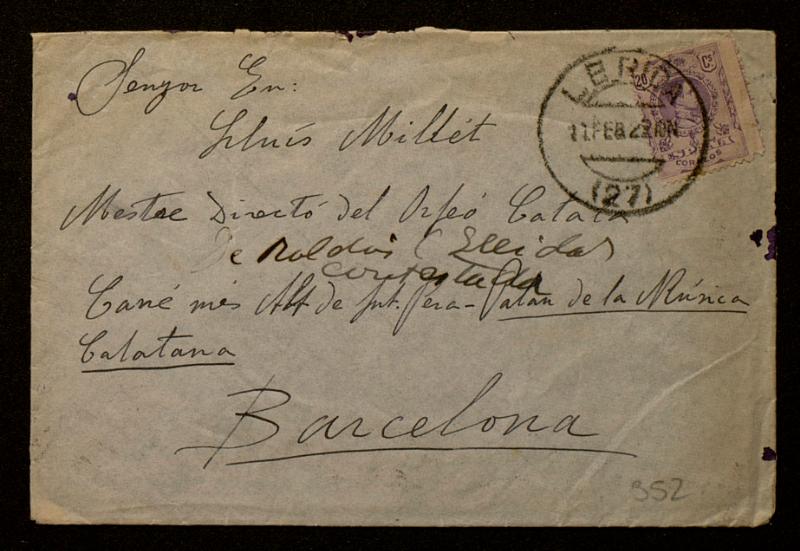 Senyor En:
Lluís Millét
Mestre Directó del Orfeó Catalá
De Roldós (Ellida)
contestada
Carré més Alt de Snt. Pera - Palau de la Música
Catalana
Barcelona
352
LERIDA
11.FEB 22.10N
(27)
20 Cs
CORREOS